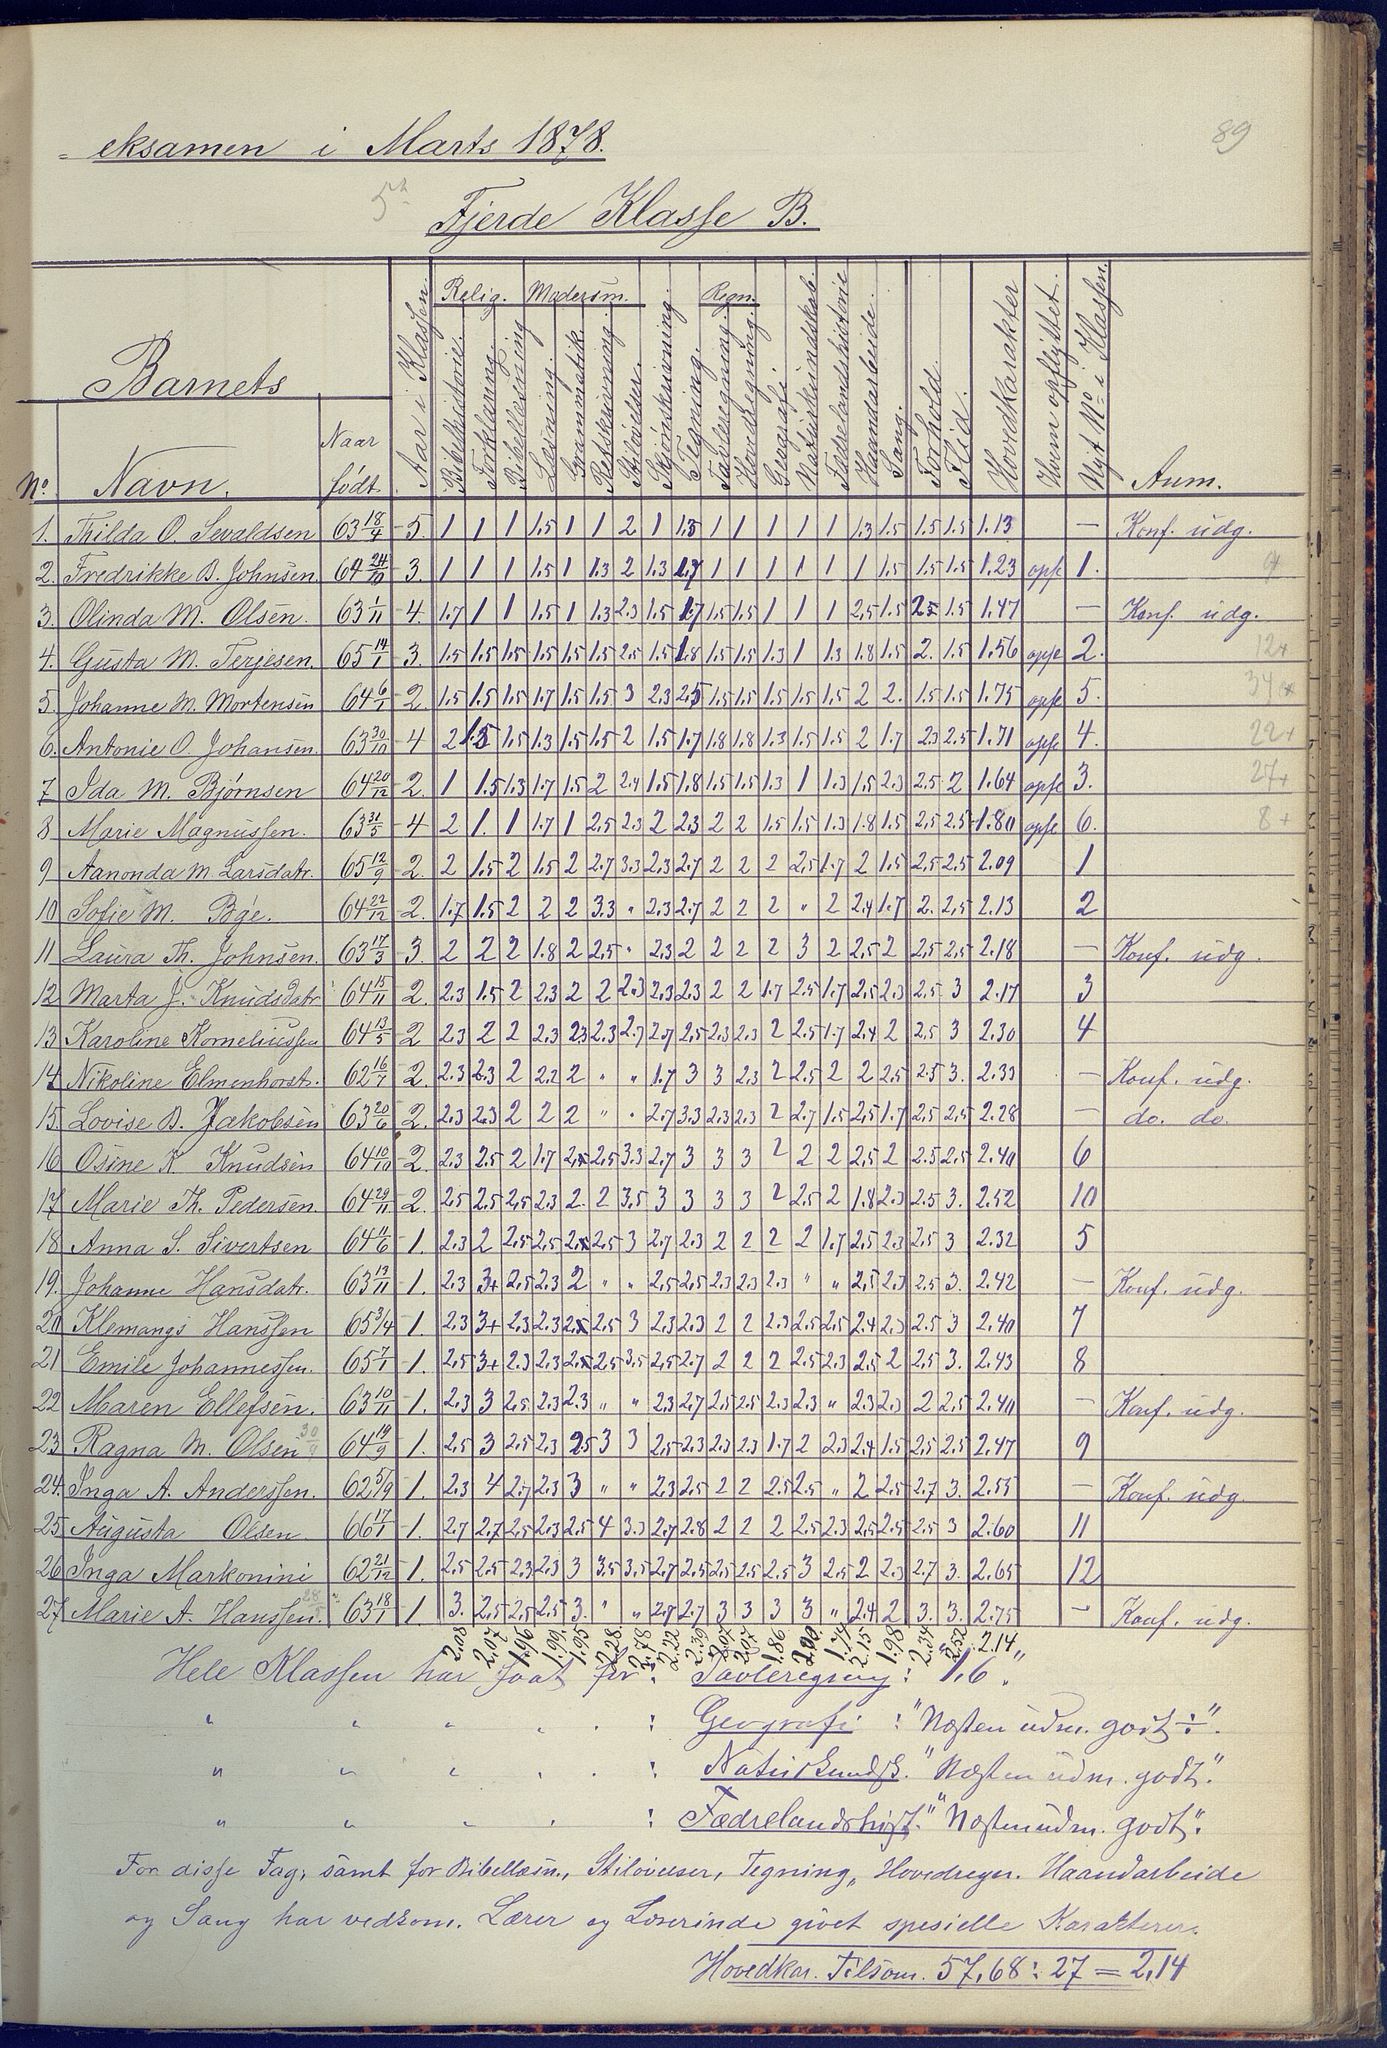 89
eksamen i Marts 1878.
5te
Fjerde Klasse B.
Relig. Modersm. Regn.
Barnets
No. Navn. Naar født Aar i Klassen. Bibelhistorie. Forklaring. Bibellæsning Læsning. Grammatik. Retskrivning. Stiløvelser. Skjønskrivning. Tegning. Tavleregning. Hovedregning. Geografi Naturkundskab. Fædrelandshistorie Haandarbeide. Sang. Forhold. Flid. Hovedkarakter Hvem opflyttet. Nyt No i Klassen. Anm.
1. Thilda O. Sevaldsen 63 18/4 5. 1 1 1 1.5 1 1 2 1 1.5 1 1 1 1 1 1.3 1.5 1.5 1.5 1.13 — Konf. udg.
2. Fredrikke B. Johnsen. 64 24/10 3. 1 1 1 1.5 1 1.3 2 1.3 1.7 1 1 1 1 1 1 1.5 1.5 1.5 1.23 opfl 1.
3. Olinda M. Olsen. 63 1/11 4. 1.7 1 1 1.5 1 1.3 2.3 1.5 1.7 1.5 1.5 1 1 1 2.5 1.5 2.5 1.5 1.47 — Konf. udg.
4. Gusta M. Terjesen. 65 14/1 3. 1.5 1.5 1.5 1.5 1.5 1.5 2.5 1.5 1.8 1.5 1.5 1.3 1 1.3 1.8 1.5 2. 1.5 1.56 opfl 2. 12+
5. Johanne M. Mortensen 64 6/1 2. 1.5 1.5 1.5 1.7 1.5 1.5 3 2.3 2.5 1.5 1.5 1.5 1.5 1.5 2 2. 1.5 1.5 1.75 opfl 5. 34+
6. Antonie O. Johansen. 63 30/10 4 2 1.5 1.5 1.3 1.5 1.5 2 1.5 1.7 1.8 1.8 1.3 1.5 1.5 2 1.7 2.3 2.5 1.71 opfl 4. 22+
7 Ida M. Bjørnsen 64 20/12 2. 1 1.5 1.3 1.7 1.5 2 2.4 1.5 1.8 1.5 1.5 1.3 1 1.3 1.5 2.3 2.5 2 1.64 opfl 3. 27+
8 Marie Magnussen. 63 31/5 4 2 1. 1 1.7 1 2.5 2.3 2 2.3 2 2 1.5 1.5 1.3 1.8 1.5 2.5 2.5 1.80 opfl 6. 8+
9 Aanonda M. Larsdatr. 65 12/9 2. 2 1.5 2 1.5 2 2.7 3.3 2.3 2.7 2 2 2 2.5 1.7 2 1.5 2.5 2.5 2.09 1
10 Sofie M. Bøe. 64 22/12 2. 1.7 1.5 2 2 2 3.3 " 2.3 2.7 2 2 2 " 2 2.4 1.7 2. 2.5 2.13 2
11 Laura Th. Johnsen. 63 17/3 3. 2 2 2 1.8 2 2.5 " 2.3 2 2 2 2 3 2 2.5 2 2.5 2.5 2.18 — Konf. udg.
12 Marta J. Knudsdatr 64 15/11 2. 2.3 1.5 2 2.3 2 2 2.3 2.3 2.3 2 2 1.7 2.5 1.7 2.5 2.3 2.5 3 2.17 3
13 Karoline Korneliussen 64 13/5 2 2.3 2 2 2.3 2.3 2.3 2.7 2.7 2.5 2.3 2.3 2 2.5 1.7 2.4 2 2.5 3 2.30 4
14 Nikoline Elmenhorst. 62 16/7 2. 2.3 2.3 2 2.2 2 " " 1.7 3 3 2.3 2 2.5 2 2 2.5 2.5 3. 2.33 — Konf. udg.
15. Lovise B. Jakobsen 63 20/6 2. 2.3 2.3 2 2 2 " " 2.7 3.3 2.3 2.3 2 2.7 1.5 2.5 1.7 2.5 2.5 2.28 — do. do.
16 Osine K. Knudsen 64 10/10 2. 2.3 2.5 2 1.7 2.5 2.5 3.3 2.7 3 3 3 2 2 2 2.5 2 2.5 2.5 2.40 6
17 Marie Th. Pedersen. 64 29/11 2. 2.5 2.5 2.5 2.3 2. 2 3.5 3 3 3 3 2 2.5 2 1.8 2.3 2.5 3. 2.52 10
18 Anna S. Sivertsen 64 11/6 1. 2.3 2 2.5 2.5 2.5 2.5 3 2.7 2.3 2 2 2 2 1.7 2.5 2.3 2.5 3 2.32 5
19. Johanne Hansdatr. 63 13/11 1. 2.3 3+ 2.5 2.3 2 " " 2.5 2.5 2.3 2.3 2.3 " " 2.5 2.3 2.5 3. 2.42 — Konf. udg.
20 Klemangs Hanssen 65 3/4 1. 2.3 3+ 2.3 2.3 2.5 2.5 3 2.3 2.3 2 2 2.3 2.5 2.5 2.4 2.3 2.5 3 2.40 7
21 Emile Johannessen. 65 7/1 1. 2.5 3+ 2.3 2.3 2.5 2.5 3.5 2.5 2.7 2 2 2 2.5 2.3 2.5 2 2.5 3. 2.43 8
22 Maren Ellefsen. 63 10/11 1. 2.3 3 2.5 2.3 2.3 " " 2.3 2.7 2.5 2.5 2.3 2.3 " 2.3 2.3 2 2.5 2.40 — Konf. udg.
23 Ragna M. Olsen 30/9 64 19/9 1. 2.5 3 2.5 2.3 2.5 3 3 2.5 2.3 2.3 2.3 1.7 2 2.3 2.4 1.5 2.5 2.5 2.47 9
24. Inga A. Anderssen. 62 5/9 1. 2.3 4 2.7 2.3 3 " " 2.3 2.5 2 2 2.5 2.5 " 2 2.5 2.7 3. 2.55 — Konf. udg.
25 Augusta Olsen 66 17/1 1. 2.7 2.7 2.5 2.3 2.5 4 3.3 2.7 2.8 2 2 2 2.5 2.3 2.5 2.5 2.5 3 2.60 11
26 Inga Markonini 62 21/12 1. 2.5 2.5 2.3 2.3 3 3.5 3.5 2.7 2.5 2.5 2.5 2.5 3 2.5 2 2.3 2.7 3. 2.65 12
27 Marie A. Hanssen. 63 18/1 1. 3. 2.5 2.5 2.5 3. " " 2.7 2.7 3 3 3 3 " 2.4 2 3. 3. 2.75 — Konf. udg.
2.08 2.07 1.96 1.99 1.95 2.28 2.78 2.22 2.39 2.07 2.07 1.86 2.00 1.74 2.15 1.98 2.34 2.52 2.14"
Hele Klassen har faat for: Tavleregning: 1.6"
" " " " " : Geografi : "Næsten udm. godt ÷".
" " " " " : Naturkundsk. "Næsten udm. godt."
" " " " : Fædrelandshist. "Næsten udm. godt."
For disse Fag, samt for Bibellæsn., Stiløvelser, Tegning, Hovedregn. Haandarbeide
og Sang har vedkom. Lærer og Lærerinde givet spesielle Karakterer.
Hovedkar. Tilsam. 57,68 : 27 = 2,14